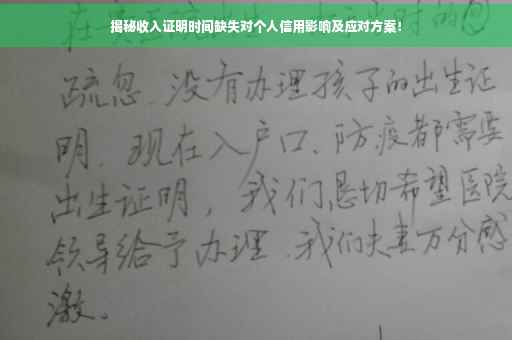 揭秘收入证明时间缺失对个人信用影响及应对方案！
时的
疏忽、没有办理孩子的出生证
明、现在入户口、防疫都需要
出生证明，我们恳切希望医院
领导给予办理、我们夫妻万分感
激。